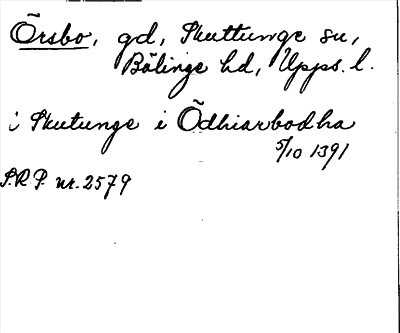 Örsbo, gd, Skuttunge sn,
Bälinge hd, Upps. l.
i Skutunge i Ödhiarbodha
5/10 1391
S.R.P. nr. 2579